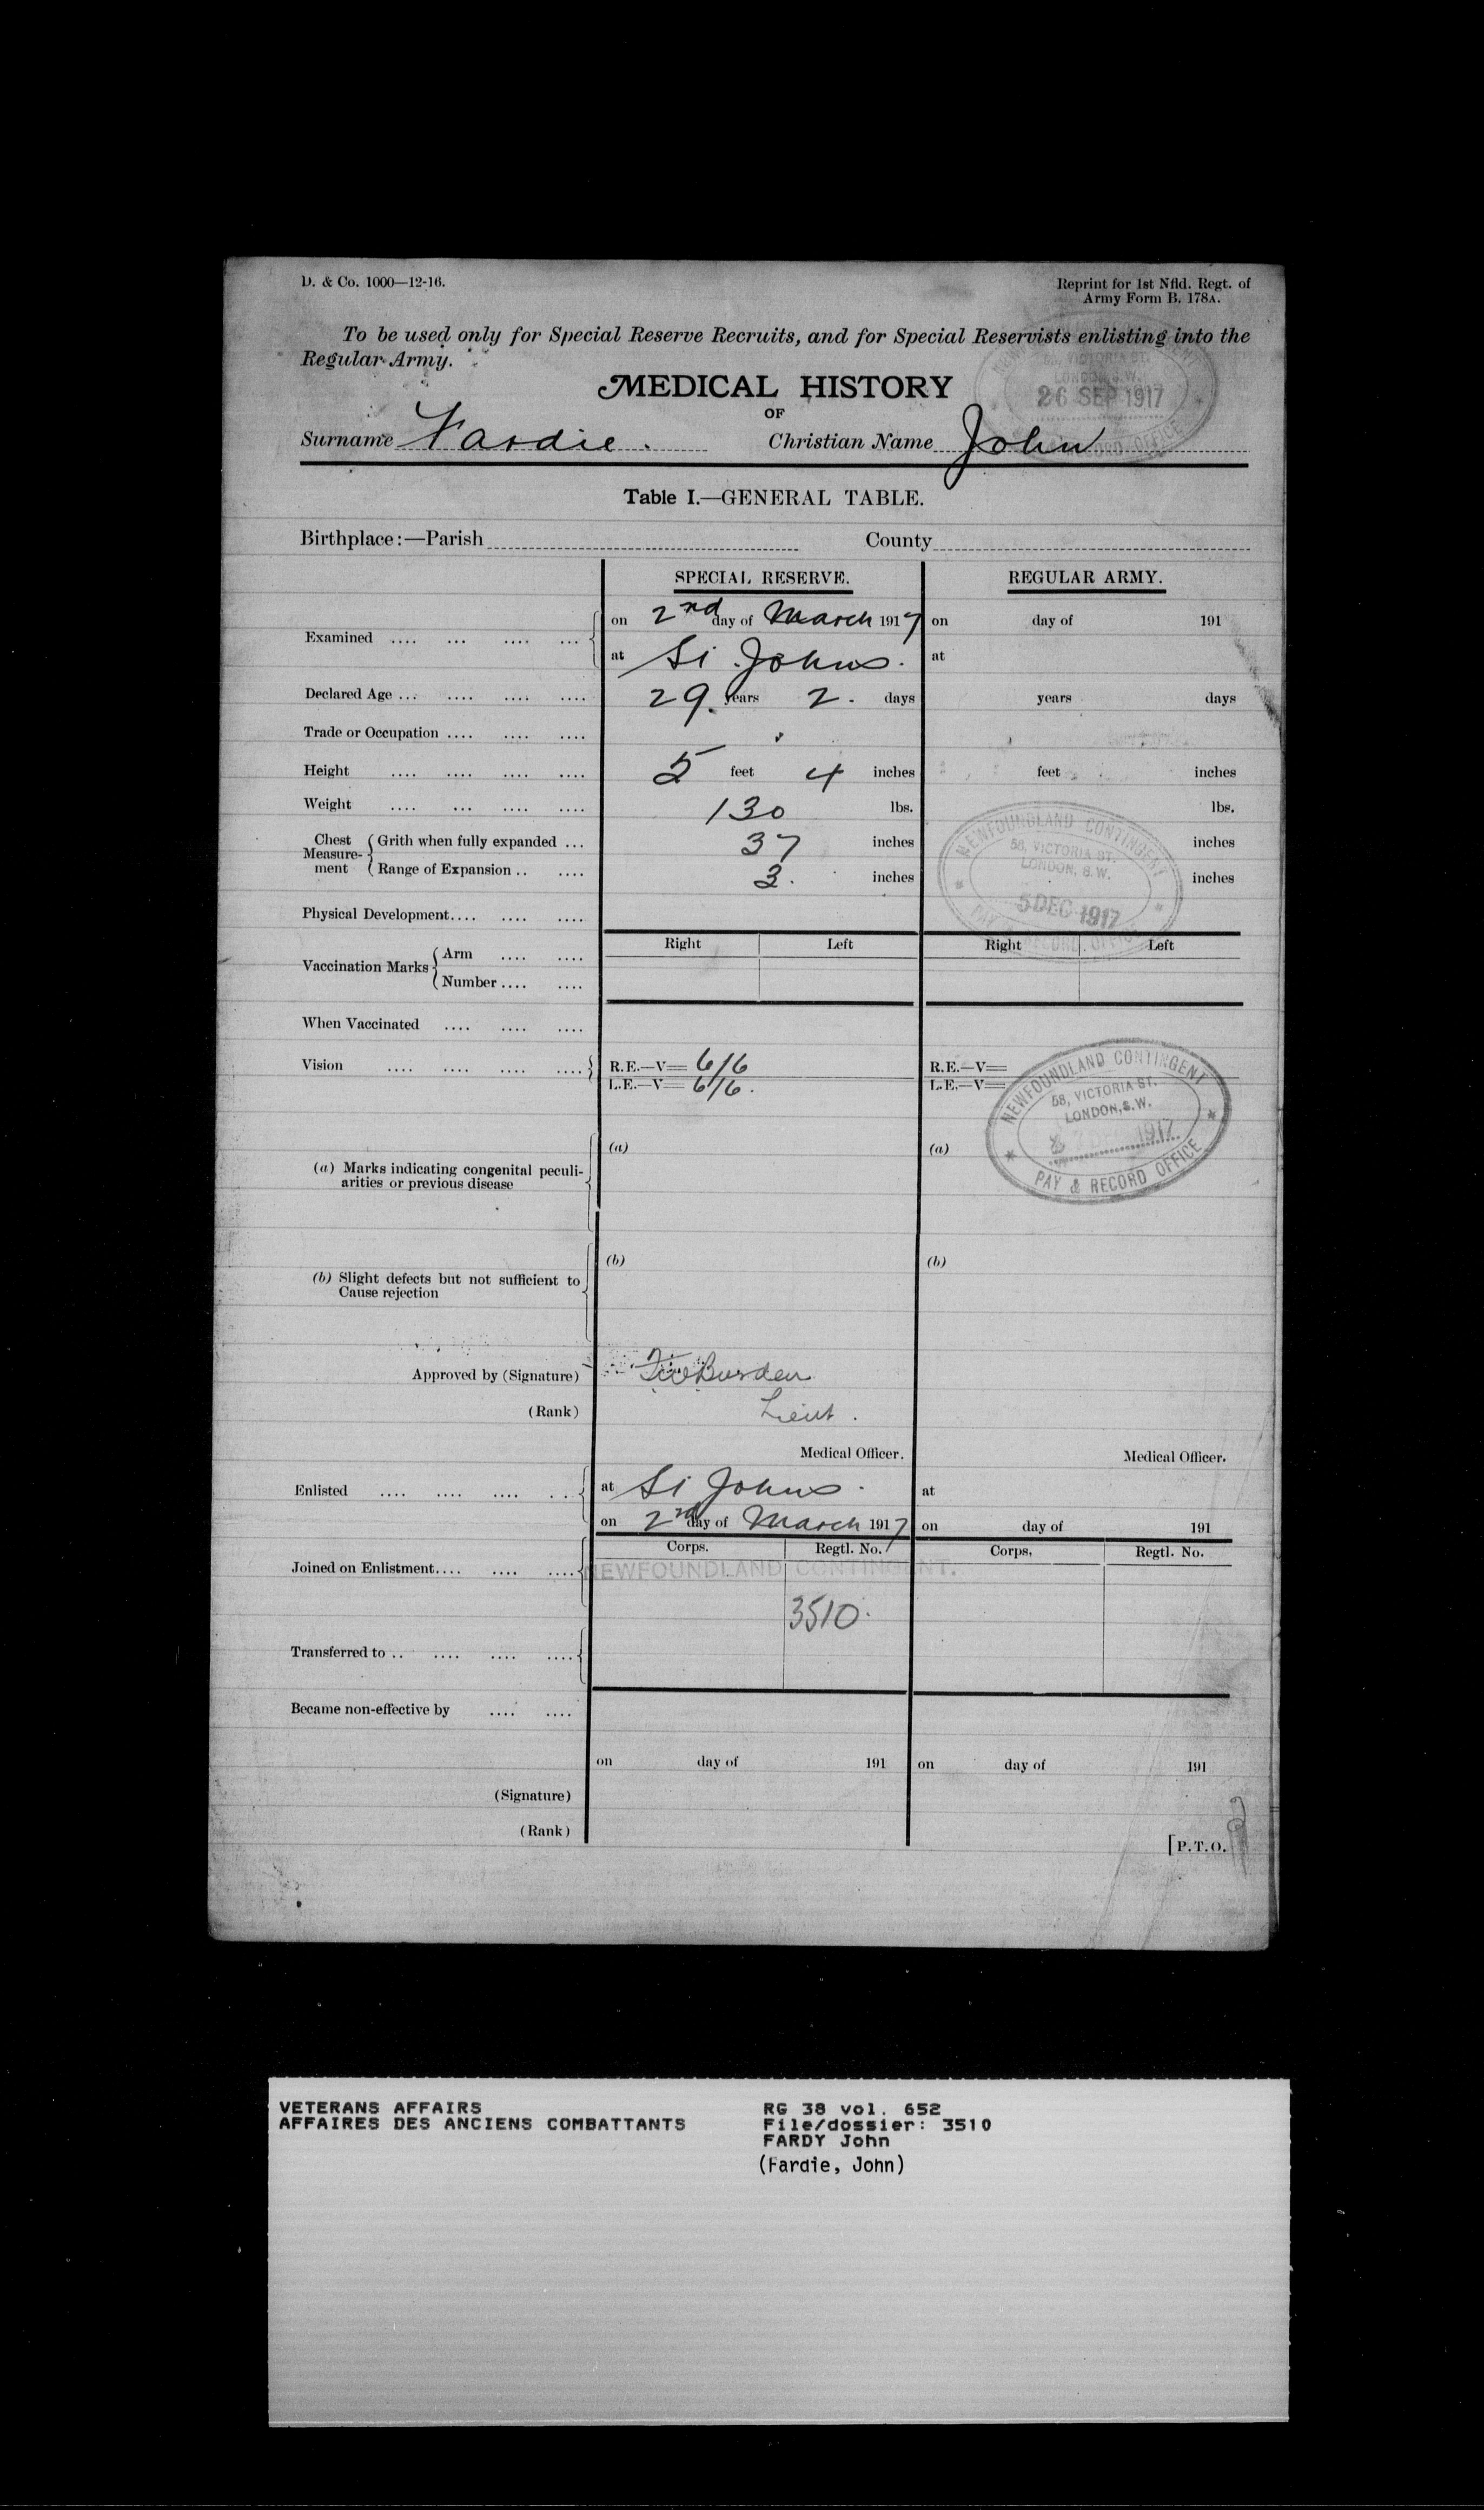 D. & Co. 1000—12-16.
Reprint for 1st Nfld. Regt. of
Army Form B. 178A.
To be used only for Special Reserve Recruits, and for Special Reservists enlisting into the
Regular Army.
MEDICAL HISTORY
OF
Surname Fardie. Christian Name John
VICTORIA ST.
LONDON, S.W.
26 SEP 1917
RECORD OFFICE
Table I.—GENERAL TABLE.
Birthplace:—Parish County
SPECIAL RESERVE. REGULAR ARMY.
Examined .... ... .... ... on 2nd day of March 1917 on day of 191
at St. Johns. at
Declared Age ... .... .... .... 29. years 2. days years days
Trade or Occupation .... .... ....
Height .... .... .... .... 5 feet 4 inches feet inches
Weight .... ... .... .... 130 lbs. lbs.
Chest Measurement Grith when fully expanded ... 37 inches inches
Range of Expansion .. .... 3. inches inches
NEWFOUNDLAND CONTINGENT
58, VICTORIA ST.
LONDON, S.W.
5 DEC 1917
PAY & RECORD OFFICE
Physical Development.... .... ....
Right Left Right Left
Vaccination Marks Arm .... ....
Number .... ....
When Vaccinated .... .... ....
Vision .... .... .... .... R.E.—V= 6/6 R.E.—V=
L.E.—V= 6/6. L.E.—V=
NEWFOUNDLAND CONTINGENT
58, VICTORIA ST.
LONDON, S.W.
1917
PAY & RECORD OFFICE
(a) (a)
(a) Marks indicating congenital peculi-
arities or previous disease
(b) (b)
(b) Slight defects but not sufficient to
Cause rejection
Approved by (Signature) Burden
(Rank) Lieut.
Medical Officer. Medical Officer.
Enlisted .... .... .... .. at St Johns. at
on 2nd day of March 1917 on day of 191
Corps. Regtl. No. Corps. Regtl. No.
Joined on Enlistment.... .... .... NEWFOUNDLAND CONTINGENT.
3510.
Transferred to .. .... .... ....
Became non-effective by .... ....
on day of 191 on day of 191
(Signature)
(Rank)
[P.T.O.
VETERANS AFFAIRS
AFFAIRES DES ANCIENS COMBATTANTS
RG 38 vol. 652
File/dossier: 3510
FARDY John
(Fardie, John)